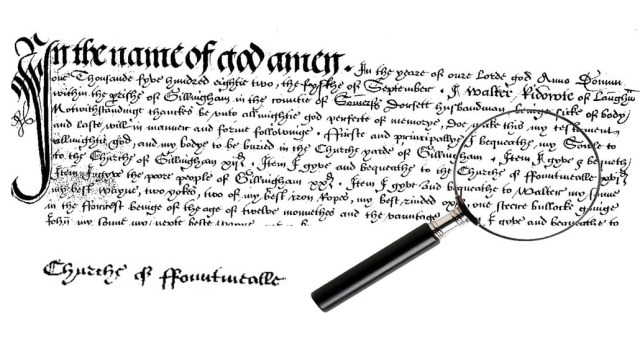 In the name of god amen. In the yeare of oure Lorde god Anno Domini
one Thousande fyve hundred eightie two, the fyfthe of September. I, Walter Ridowte of Langhm
within the prishe of Gillingham in the countie of Dorsett husbandman beinge sicke of body
Notwithstandinge thanckes be unto allmightie god perfecte of memorye, doe make this my testament
and laste will in manner and forme followinge. ffirste and principallye I bequeathe my Sowle to
allmightie god, and my bodye to be buried in the Churche yarde of Gillingham. Item I gyve & bequethe
to the Churche of Gillingham xijd. Item I gyve and bequeathe to the Churche of ffountmealle
Item I gyve the poore people of Gillingham xxd. Item I gyve and bequeathe to Walter my sonne
my best wayne, two yokes, two of my best iron ropes, my best rinded one steere bullocke
in the fforrest beinge of the age of twelve monethes and the vauntage I gyve and bequeathe to
John my sonne my nexte beste wayne
Churche of ffountmealle